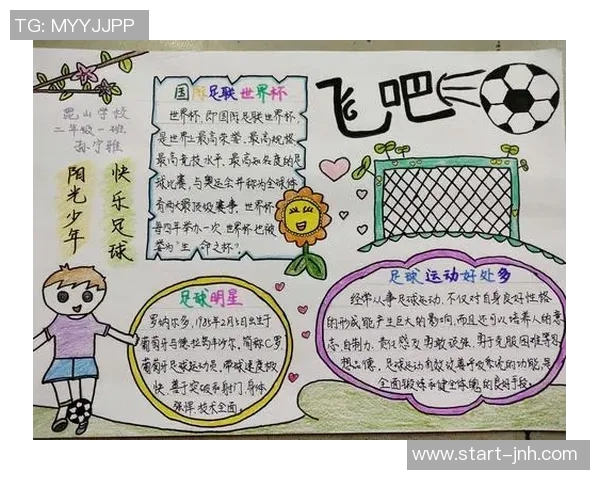 TG: MYYJJPP
昆山学校
二年级一班
孙宇雅
阳光少年
快乐足球
国际足联世界杯
世界杯,即国际足联世界杯,
是世界上最高荣誉、最高规格、
最高竞技水平、最高知名度的足
球比赛,与奥运会并称为全球体
育两大最顶级赛事。世界杯
每四年举办一次,世界杯也被
誉为“生命之杯”。
飞吧
足球明星
罗纳尔多,1985年2月5日出生于
葡萄牙马德拉群岛丰沙尔,简称C罗,
葡萄牙足球运动员。带球速度极
快,善于突破和射门,身体
强悍,技术全面。
足球运动好处多
经常从事足球运动,不仅对自身良好性格
的形成能产生巨大的影响,而且还可以培养人的意
志、自制力、责任感及勇敢顽强、勇于克服困难等思
想品德。足球运动有效改善呼吸系统的功能,是
全面锻炼和健全体魄的良好手段。
www.start-jnh.com